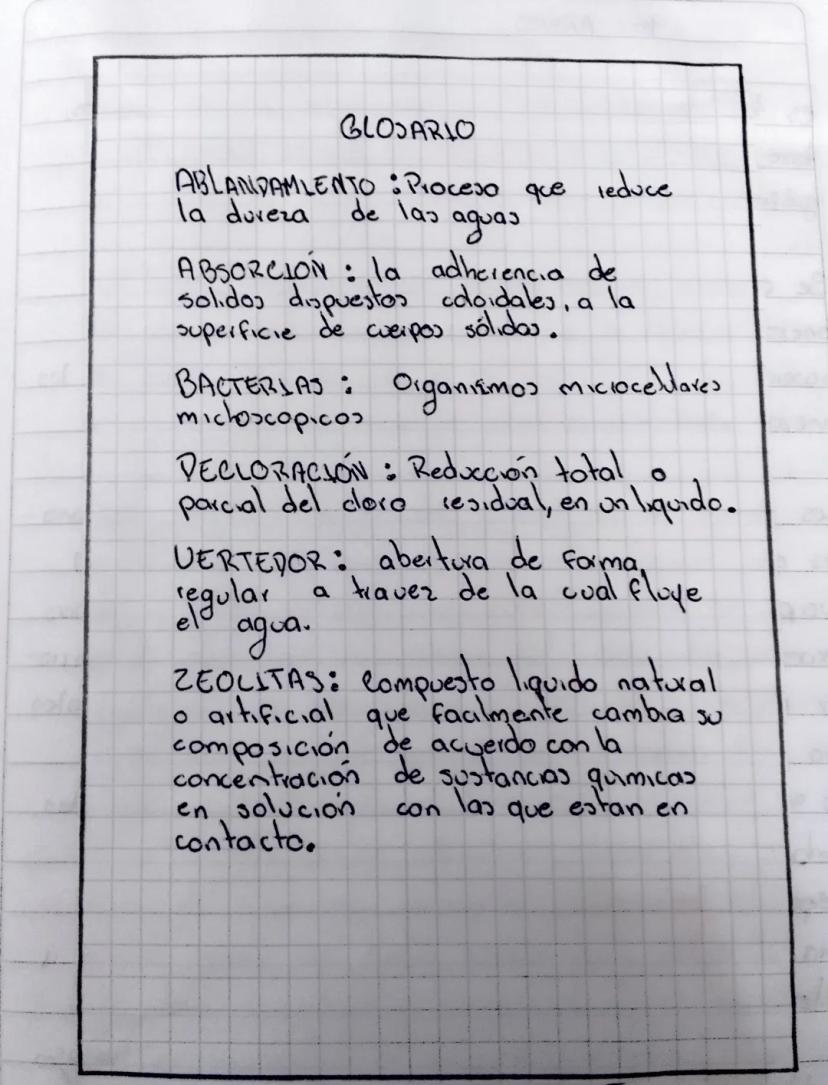 GLOSARIO
ABLANDAMIENTO : Proceso que reduce
la dureza de las aguas
ABSORCIÓN : la adherencia de
solidos dispuestos coloidales, a la
superficie de cuerpos sólidos.
BACTERIAS : Organismos microcelulares
microscopicos
DECLORACIÓN : Reducción total o
parcial del cloro residual, en un liquido.
VERTEDOR : abertura de forma
regular a travez de la cual fluye
el agua.
ZEOLITAS : Compuesto liquido natural
o artificial que facilmente cambia su
composición de acuerdo con la
concentración de sustancias quimicas
en solución con las que estan en
contacto.